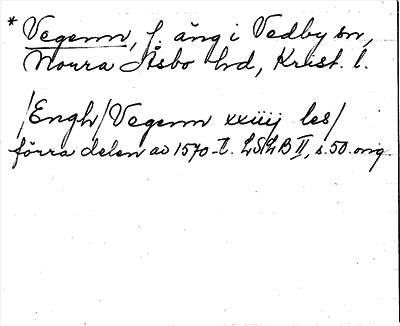 * Vegenn, f. äng i Vedby sn,
Norra Åsbo hd, Krist. l.
/Engh/ Vegenn xxiiij les/
förra delen av 1570-t. LSLB II, s. 50. orig